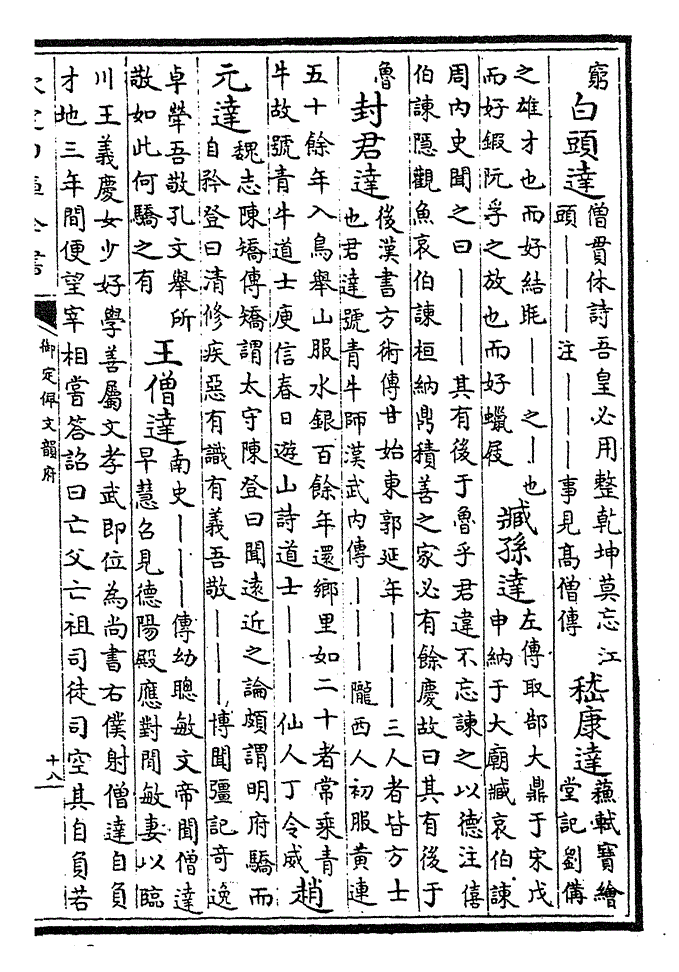 窮
白頭達
僧貫休詩吾皇必用整乾坤莫忘江
頭｜｜｜注｜｜｜｜事見高僧傳
嵇康達
蘇軾寶繪
堂記劉備
之雄才也而好結毦｜｜之｜也
而好鍛阮孚之放也而好蠟屐
臧孫達
左傳取郜大鼎于宋戊
申納于大廟臧哀伯諫
周内史聞之曰｜｜｜其有後于魯乎君違不忘諫之以德注僖
伯諫隱觀魚哀伯諫桓納鼎積善之家必有餘慶故曰其有後于
魯
封君達
後漢書方術傳甘始東郭延年｜｜｜三人者皆方士
也君達號青牛師漢武内傳｜｜｜隴西人初服黄連
五十餘年入鳥舉山服水銀百餘年還鄉里如二十者常乘青
牛故號青牛道士庾信春日遊山詩道士｜｜｜仙人丁令威
趙
元達
魏志陳矯傳矯謂太守陳登曰聞遠近之論頗謂明府驕而
自矜登曰清修疾惡有識有義吾敬｜｜｜博聞彊記奇逸
卓犖吾敬孔文舉所
敬如此何驕之有
王僧達
南史｜｜｜傳幼聰敏文帝聞僧達
早慧召見德陽殿應對閑敏妻以臨
川王義慶女少好學善屬文孝武即位為尚書右僕射僧達自負
才地三年間便望宰相嘗答詔曰亡父亡祖司徒司空其自負若
御定佩文韻府
十八